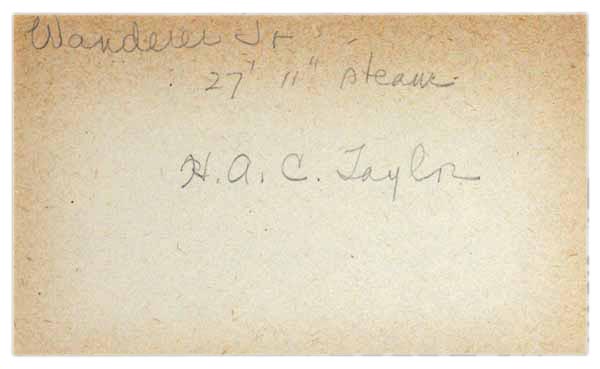 Wanderer Jr
27' 11" steam
H. A. C. Taylor